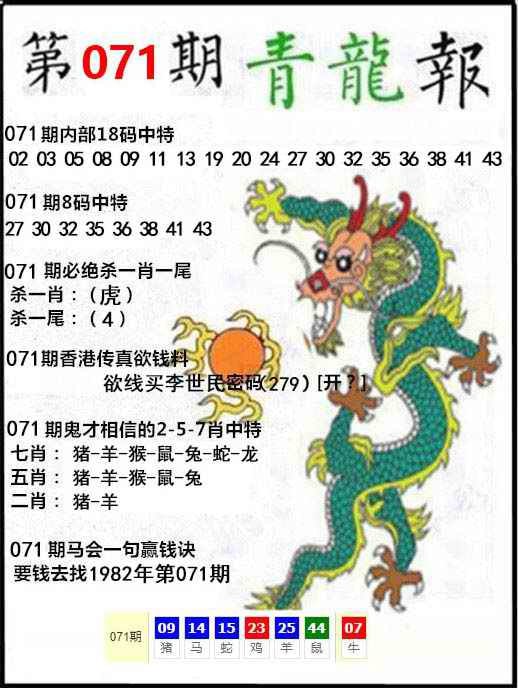 第071期青龍報
071期内部18码中特
02 03 05 08 09 11 13 19 20 24 27 30 32 35 36 38 41 43
071期8码中特
27 30 32 35 36 38 41 43
071 期必绝杀一肖一尾
杀一肖：（虎）
杀一尾：（4）
071期香港传真欲钱料
欲线买李世民密码(279）[开？]
071期鬼才相信的2-5-7肖中特
七肖：猪-羊-猴-鼠-兔-蛇-龙
五肖：猪-羊-猴-鼠-兔
二肖：猪-羊
071期马会一句赢钱诀
要钱去找1982年第071期
071期 09 14 15 23 25 44 07
猪 马 蛇 鸡 羊 鼠 牛